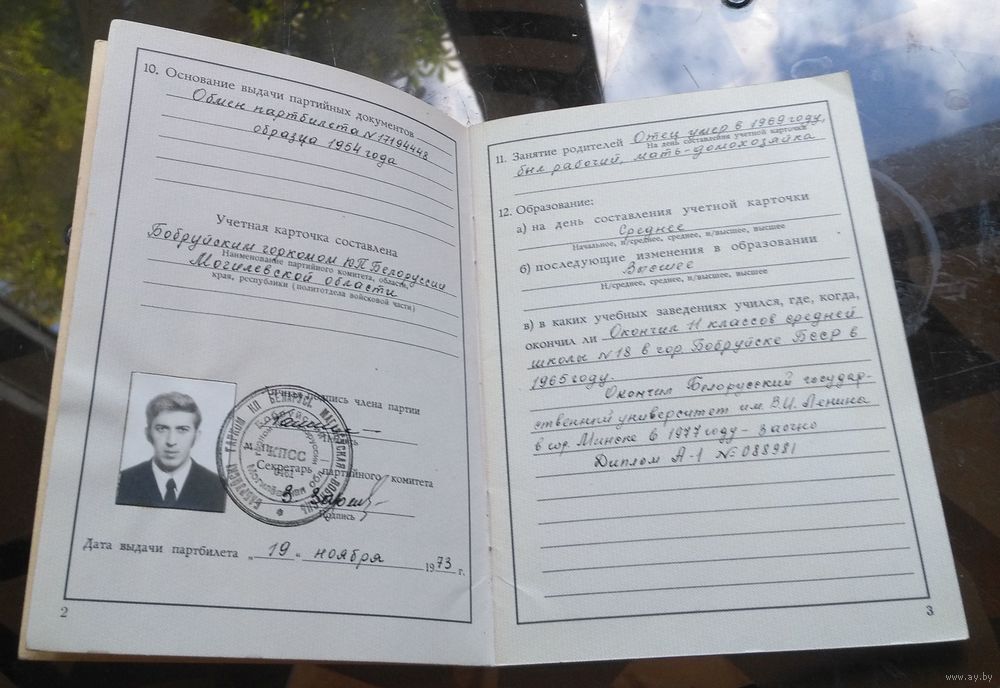 10. Основание выдачи партийных документов
Обмен партбилета N 17194448
образца 1954 года
Учетная карточка составлена
Бобруйским горкомом КП Белоруссии
Наименование партийного комитета, области,
Могилевской области
края, республики (политотдела войсковой части)
Личная подпись члена партии
Подпись
М. П.
КПСС
Секретарь партийного комитета
Подпись
Дата выдачи партбилета „ 19 “ ноября 1973 г.
2
11. Занятие родителей Отец умер в 1969 году,
На день составления учетной карточки
был рабочий, мать-домохозяйка
12. Образование:
а) на день составления учетной карточки
Среднее
Начальное, н/среднее, среднее, н/высшее, высшее
б) последующие изменения в образовании
Высшее
Н/среднее, среднее, н/высшее, высшее
в) в каких учебных заведениях учился, где, когда,
окончил ли Окончил 11 классов средней
школы N 18 в гор Бобруйске БССР в
1965 году.
Окончил Белорусский государ-
ственный университет им. В.И. Ленина
в гор. Минске в 1977 году - заочно
Диплом А-1 № 088981
3
www.ay.by